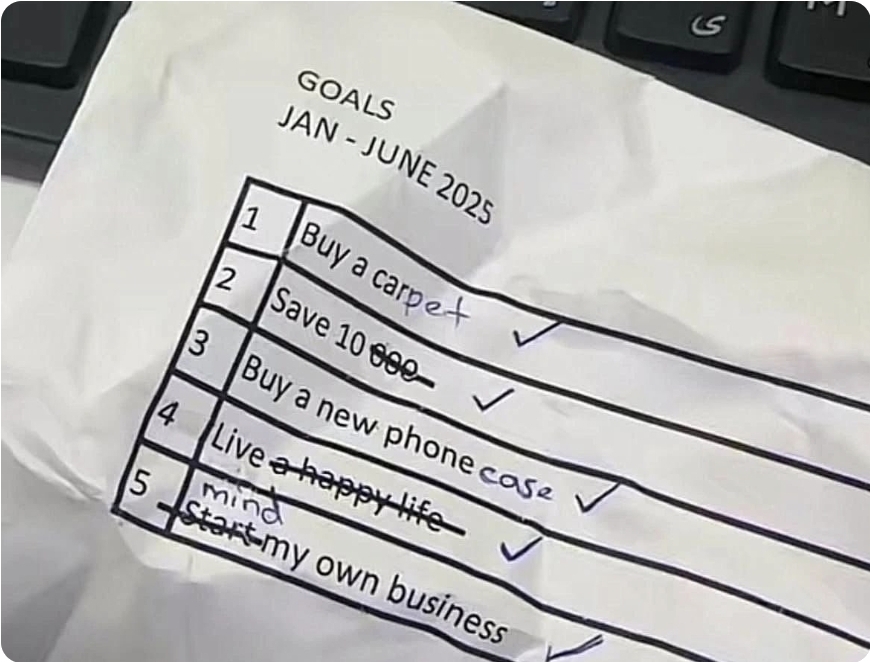 ى
M
GOALS
JAN - JUNE 2025
1 Buy a carpet ✓
2 Save 10 000 ✓
3 Buy a new phone case ✓
4 Live a happy life ✓
mind
5 Start my own business ✓